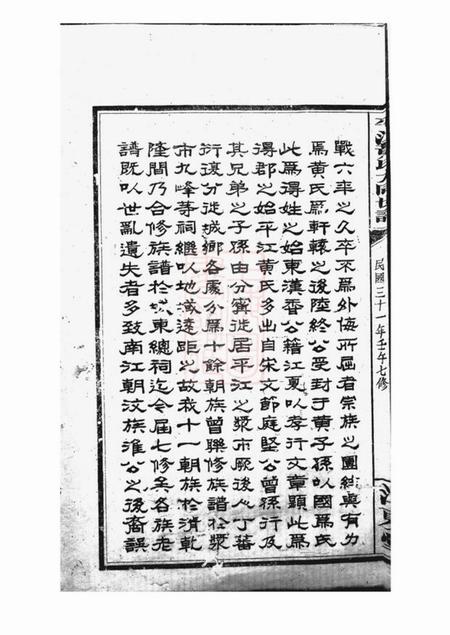 戰六年之久卒不爲外侮所屈者宗族之團結與有力
爲黃氏爲軒轅之後陸終公受封于黃子孫以國爲氏
此爲得姓之始東漢香公籍江夏以孝行文章顯此爲
得郡之始平江黃氏多出自宋文節庭堅公曾孫行及
其兄弟之子孫由分寧徙居平江之漿市厥後人丁蕃
衍復分徙城鄉各處分爲十餘朝族曾聯修族譜於漿
市九峰等祠繼以地域遠距之故我十一朝族於清乾
隆間乃合修族譜於城東總祠迄今屆七修矣各族老
譜既以世亂遺失者多致南江朝汶族淮公之後裔誤
民國三十一年壬午七修